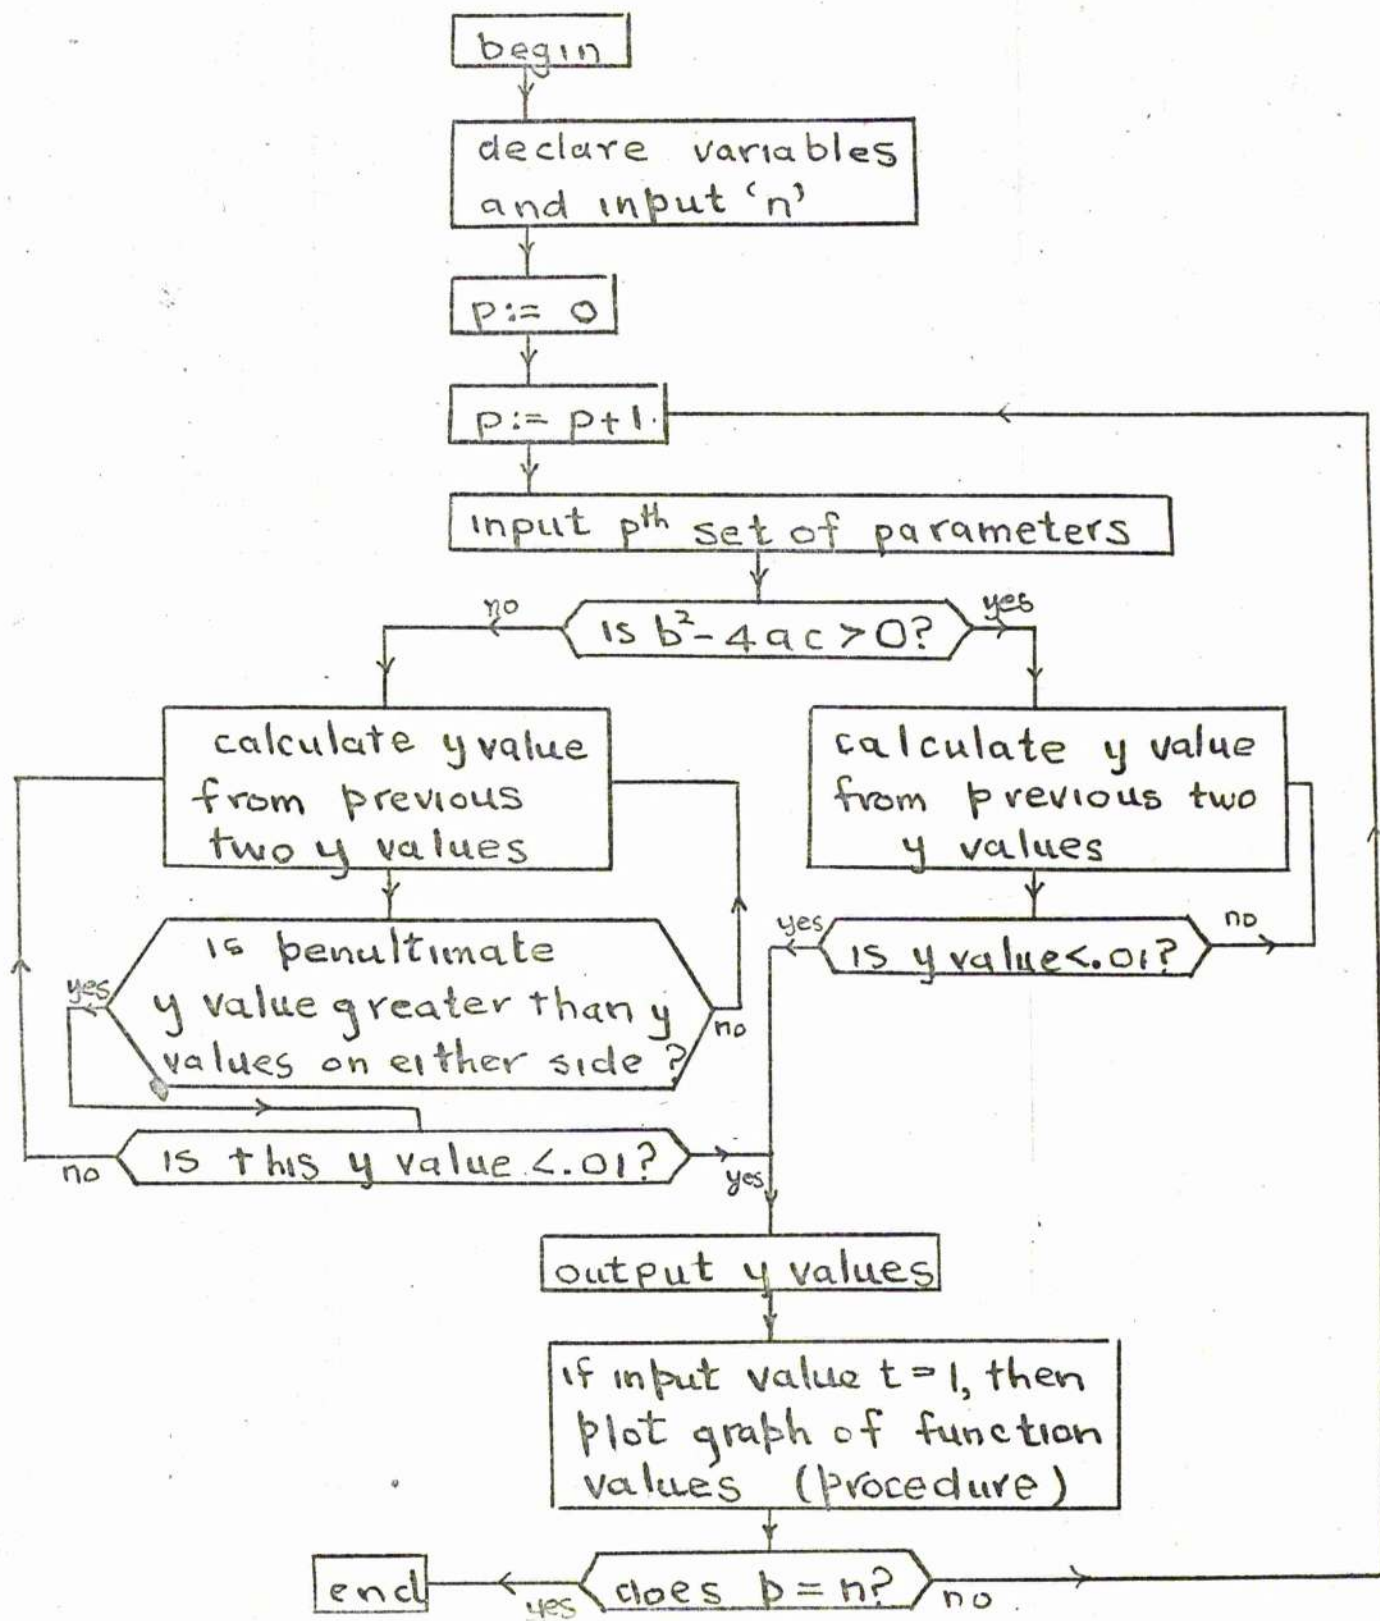 begin
declare variables
and input 'n'
p:= 0
p:= p+1.
input pth set of parameters
no
is b²-4ac>0?
yes
calculate y value
from previous
two y values
calculate y value
from previous two
y values
yes
is penultimate
y value greater than y
values on either side?
no
yes
is y value<.01?
no
no
is this y value <.01?
yes
output y values
if input value t=1, then
plot graph of function
values (procedure)
end
yes
does p=n?
no